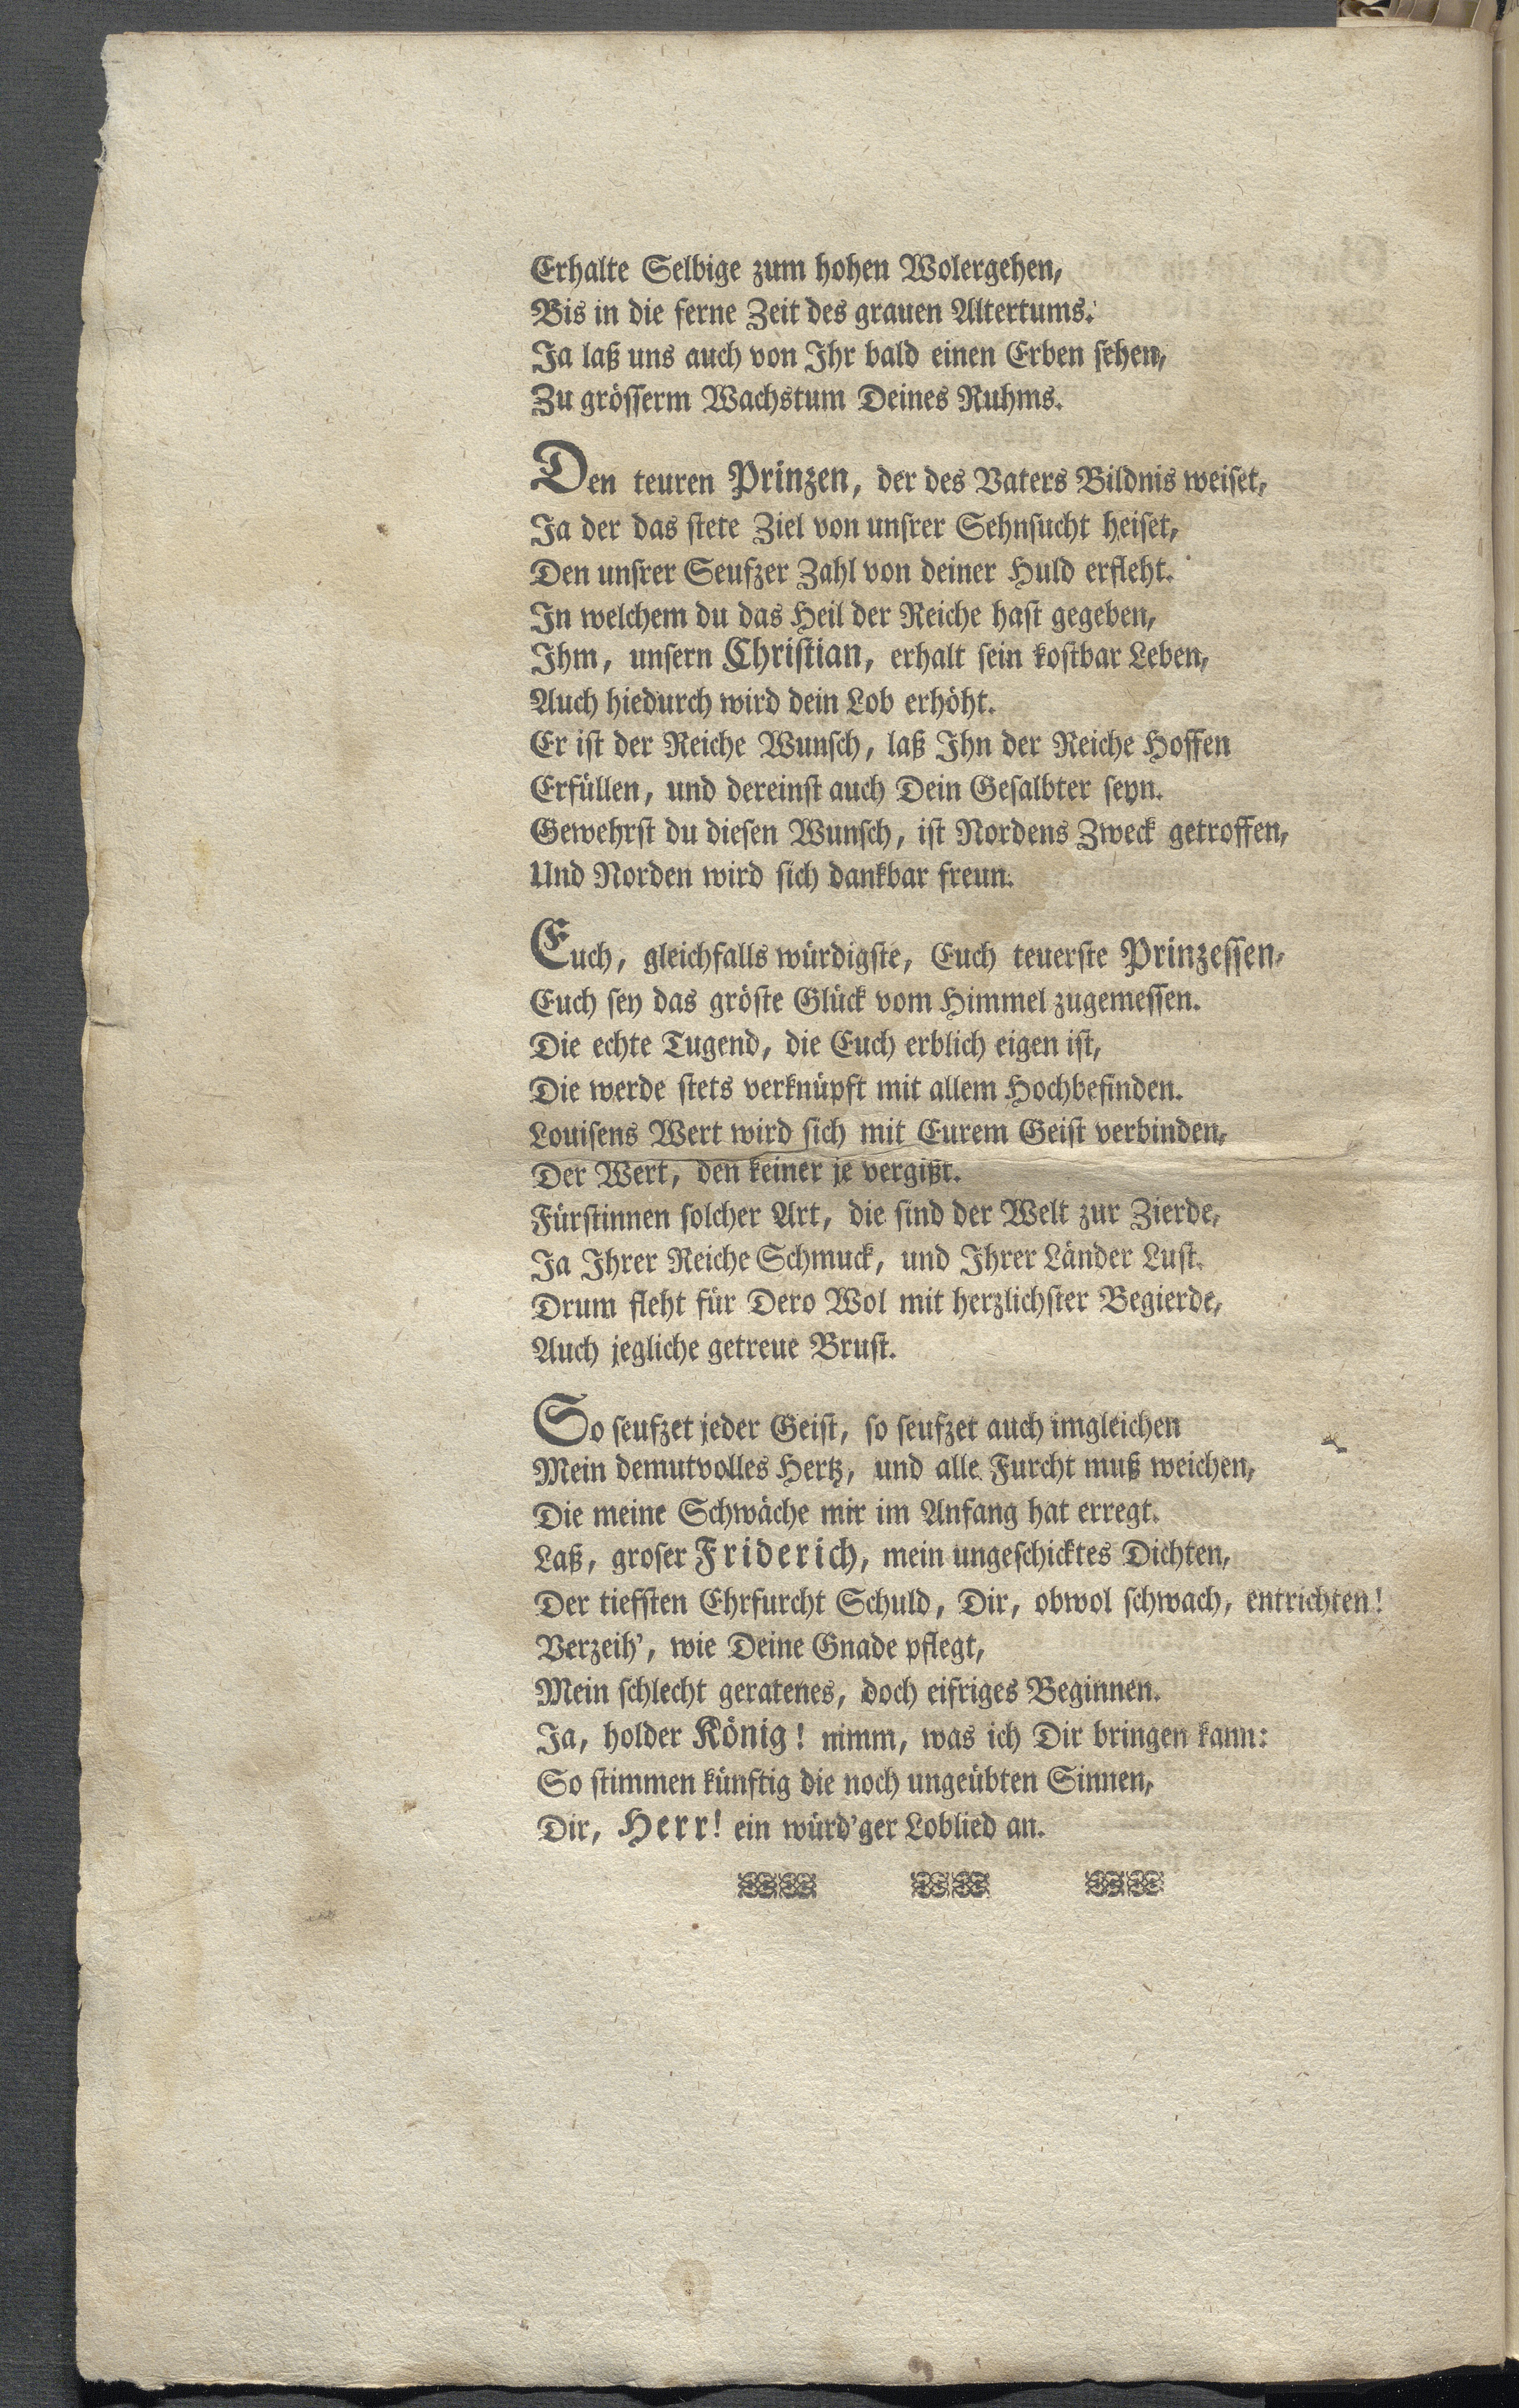 Erhalte Selbige zum hohen Wolergehen,
Bis in die ferne Zeit des grauen Altertums.
Ja laß uns auch von Ihr bald einen Erben sehen,
Zu grösserm Wachstum Deines Ruhms.
Den teuren Prinzen, der des Vaters Bildnis weiset,
Ja der das stete Ziel von unsrer Sehnsucht heiset,
Den unsrer Seufzer Zahl von deiner Huld erfleht.
In welchem du das Heil der Reiche hast gegeben,
Ihm, unsern Christian, erhalt sein kostbar Leben,
Auch hiedurch wird dein Lob erhöht.
Er ist der Reiche Wunsch, laß Ihn der Reiche Hoffen
Erfüllen, und dereinst auch Dein Gesalbter seyn.
Gewehrst du diesen Wunsch, ist Nordens Zweck getroffen,
Und Norden wird sich dankbar freun.
Euch, gleichfalls würdigste, Euch teuerste Prinzessen,
Euch sey das gröste Glück vom Himmel zugemessen.
Die echte Tugend, die Euch erblich eigen ist,
Die werde stets verknüpft mit allem Hochbefinden.
Louisens Wert wird sich mit Eurem Geist verbinden,
Der Wert, den keiner je vergißt.
Fürstinnen solcher Art, die sind der Welt zur Zierde,
Ja Ihrer Reiche Schmuck, und Ihrer Länder Lust.
Drum fleht für Dero Wol mit herzlichster Begierde,
Auch jegliche getreue Brust.
So seufzet jeder Geist, so seufzet auch imgleichen
Mein demutvolles Hertz, und alle Furcht muß weichen,
Die meine Schwäche mir im Anfang hat erregt.
Laß, groser Friderich, mein ungeschicktes Dichten,
Der tiefsten Ehrfurcht Schuld, Dir, obwol schwach, entrichten!
Verzeih', wie Deine Gnade pflegt,
Mein schlecht geratenes, doch eifriges Beginnen.
Ja, holder König! nimm, was ich Dir bringen kann:
So stimmen künftig die noch ungeübten Sinnen,
Dir, Herr! ein würd'ger Loblied an.